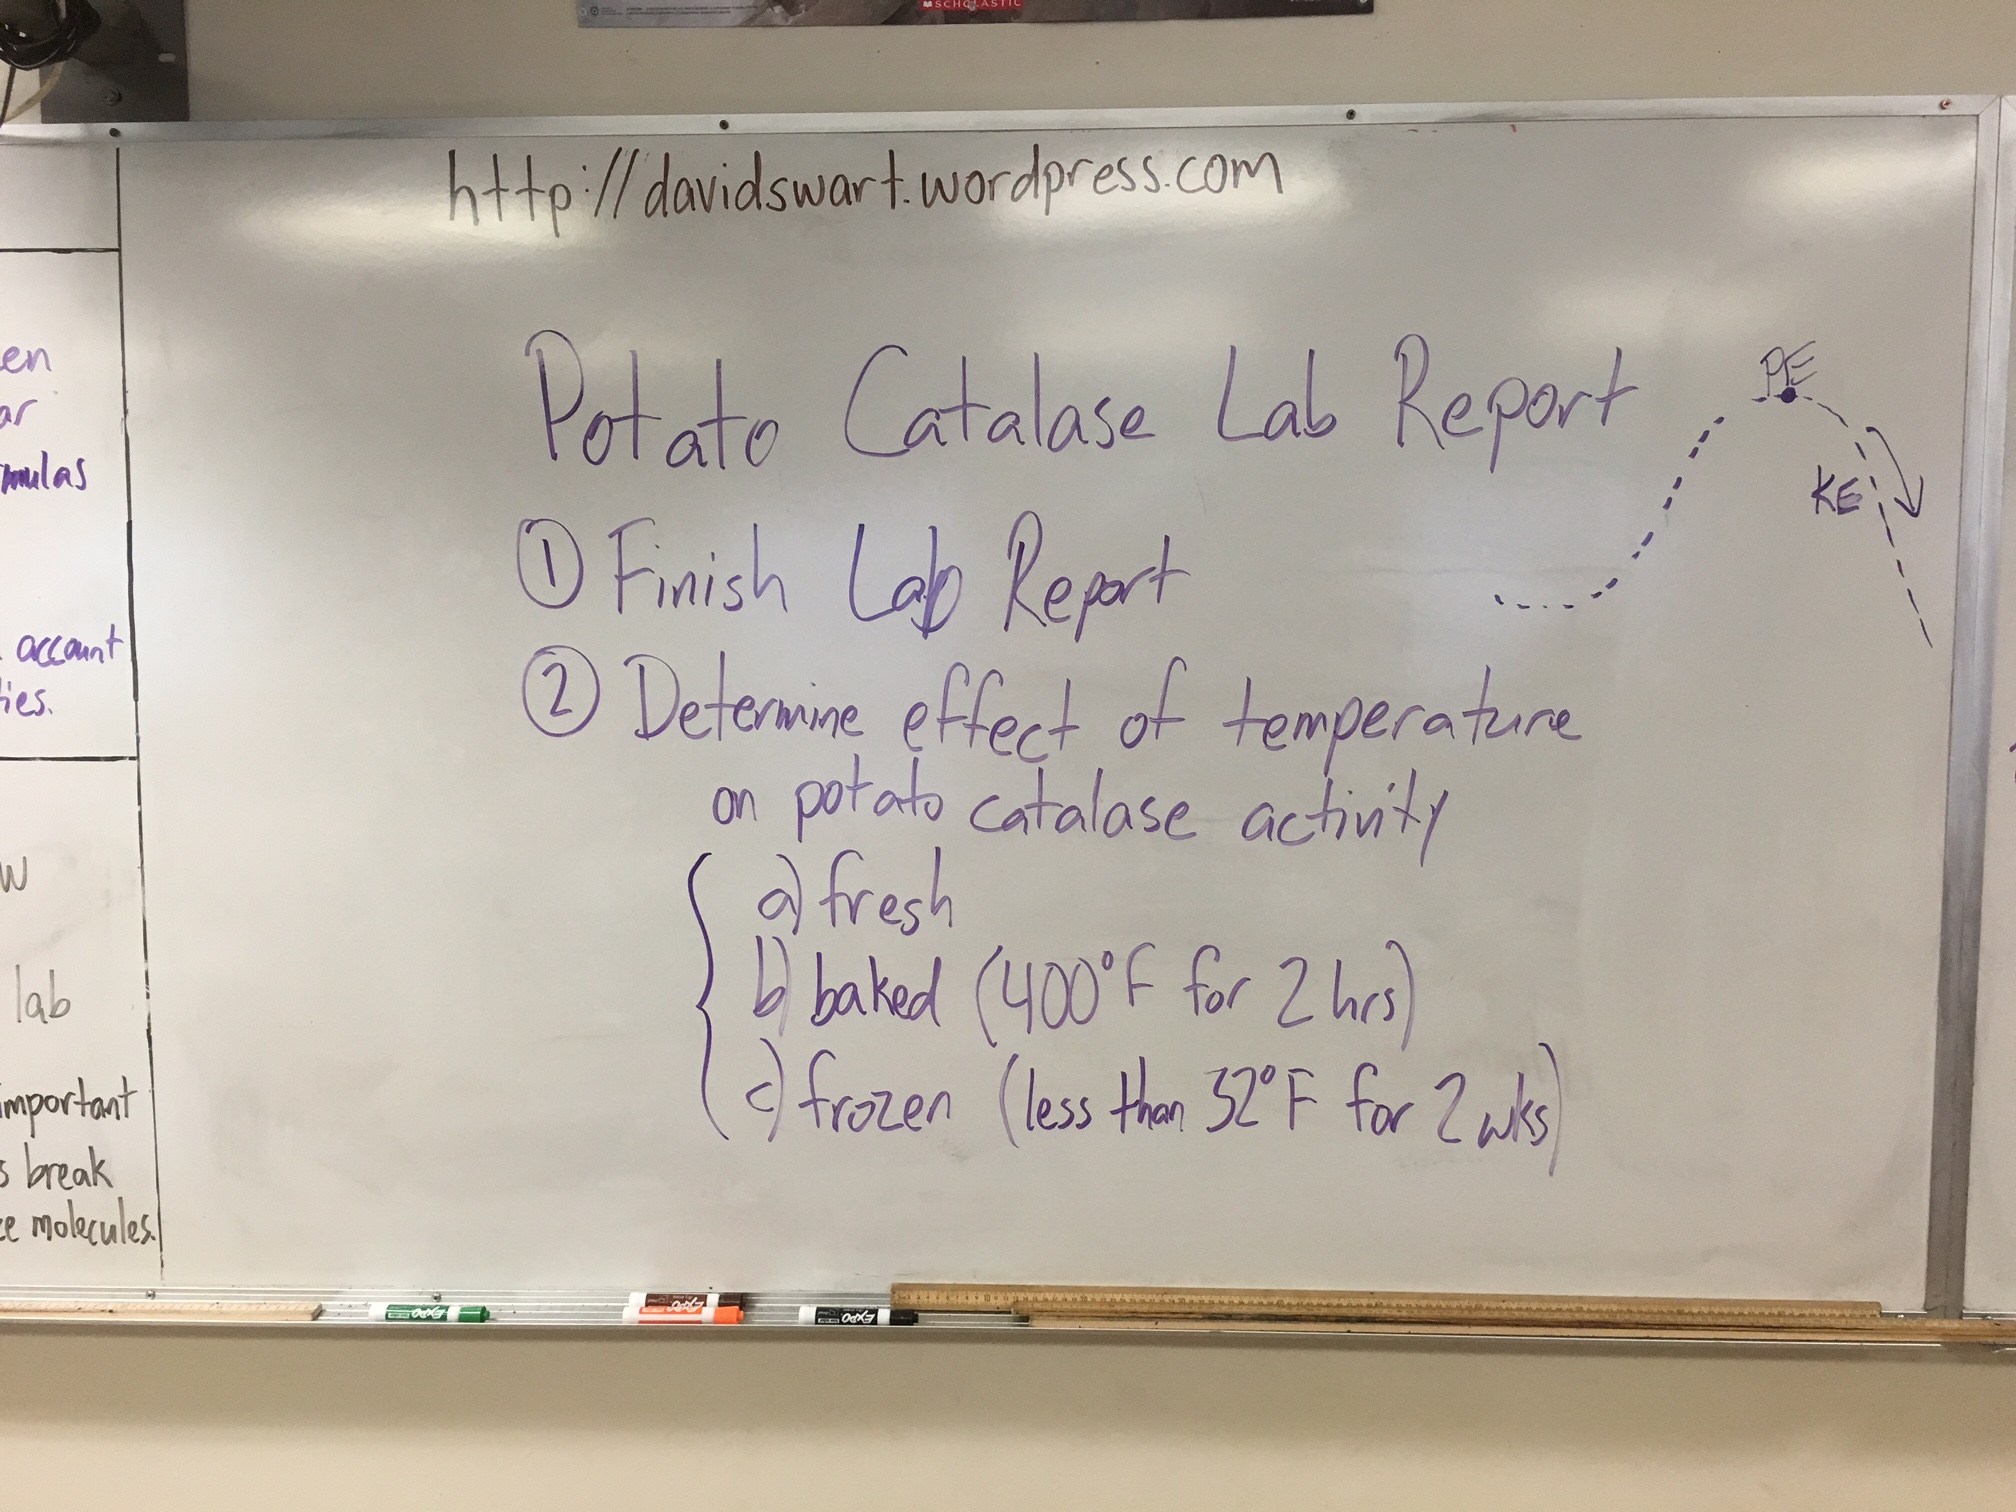 SCHOLASTIC
http://davidswart.wordpress.com
en
ar
mulas
account
ties.
w
lab
important
s break
ce molecules.
Potato Catalase Lab Report
① Finish Lab Report
② Determine effect of temperature
on potato catalase activity
a) fresh
b) baked (400°F for 2 hrs)
c) frozen (less than 32°F for 2 wks)
PE
KE
EXPO
EXPO
EXPO
EXPO